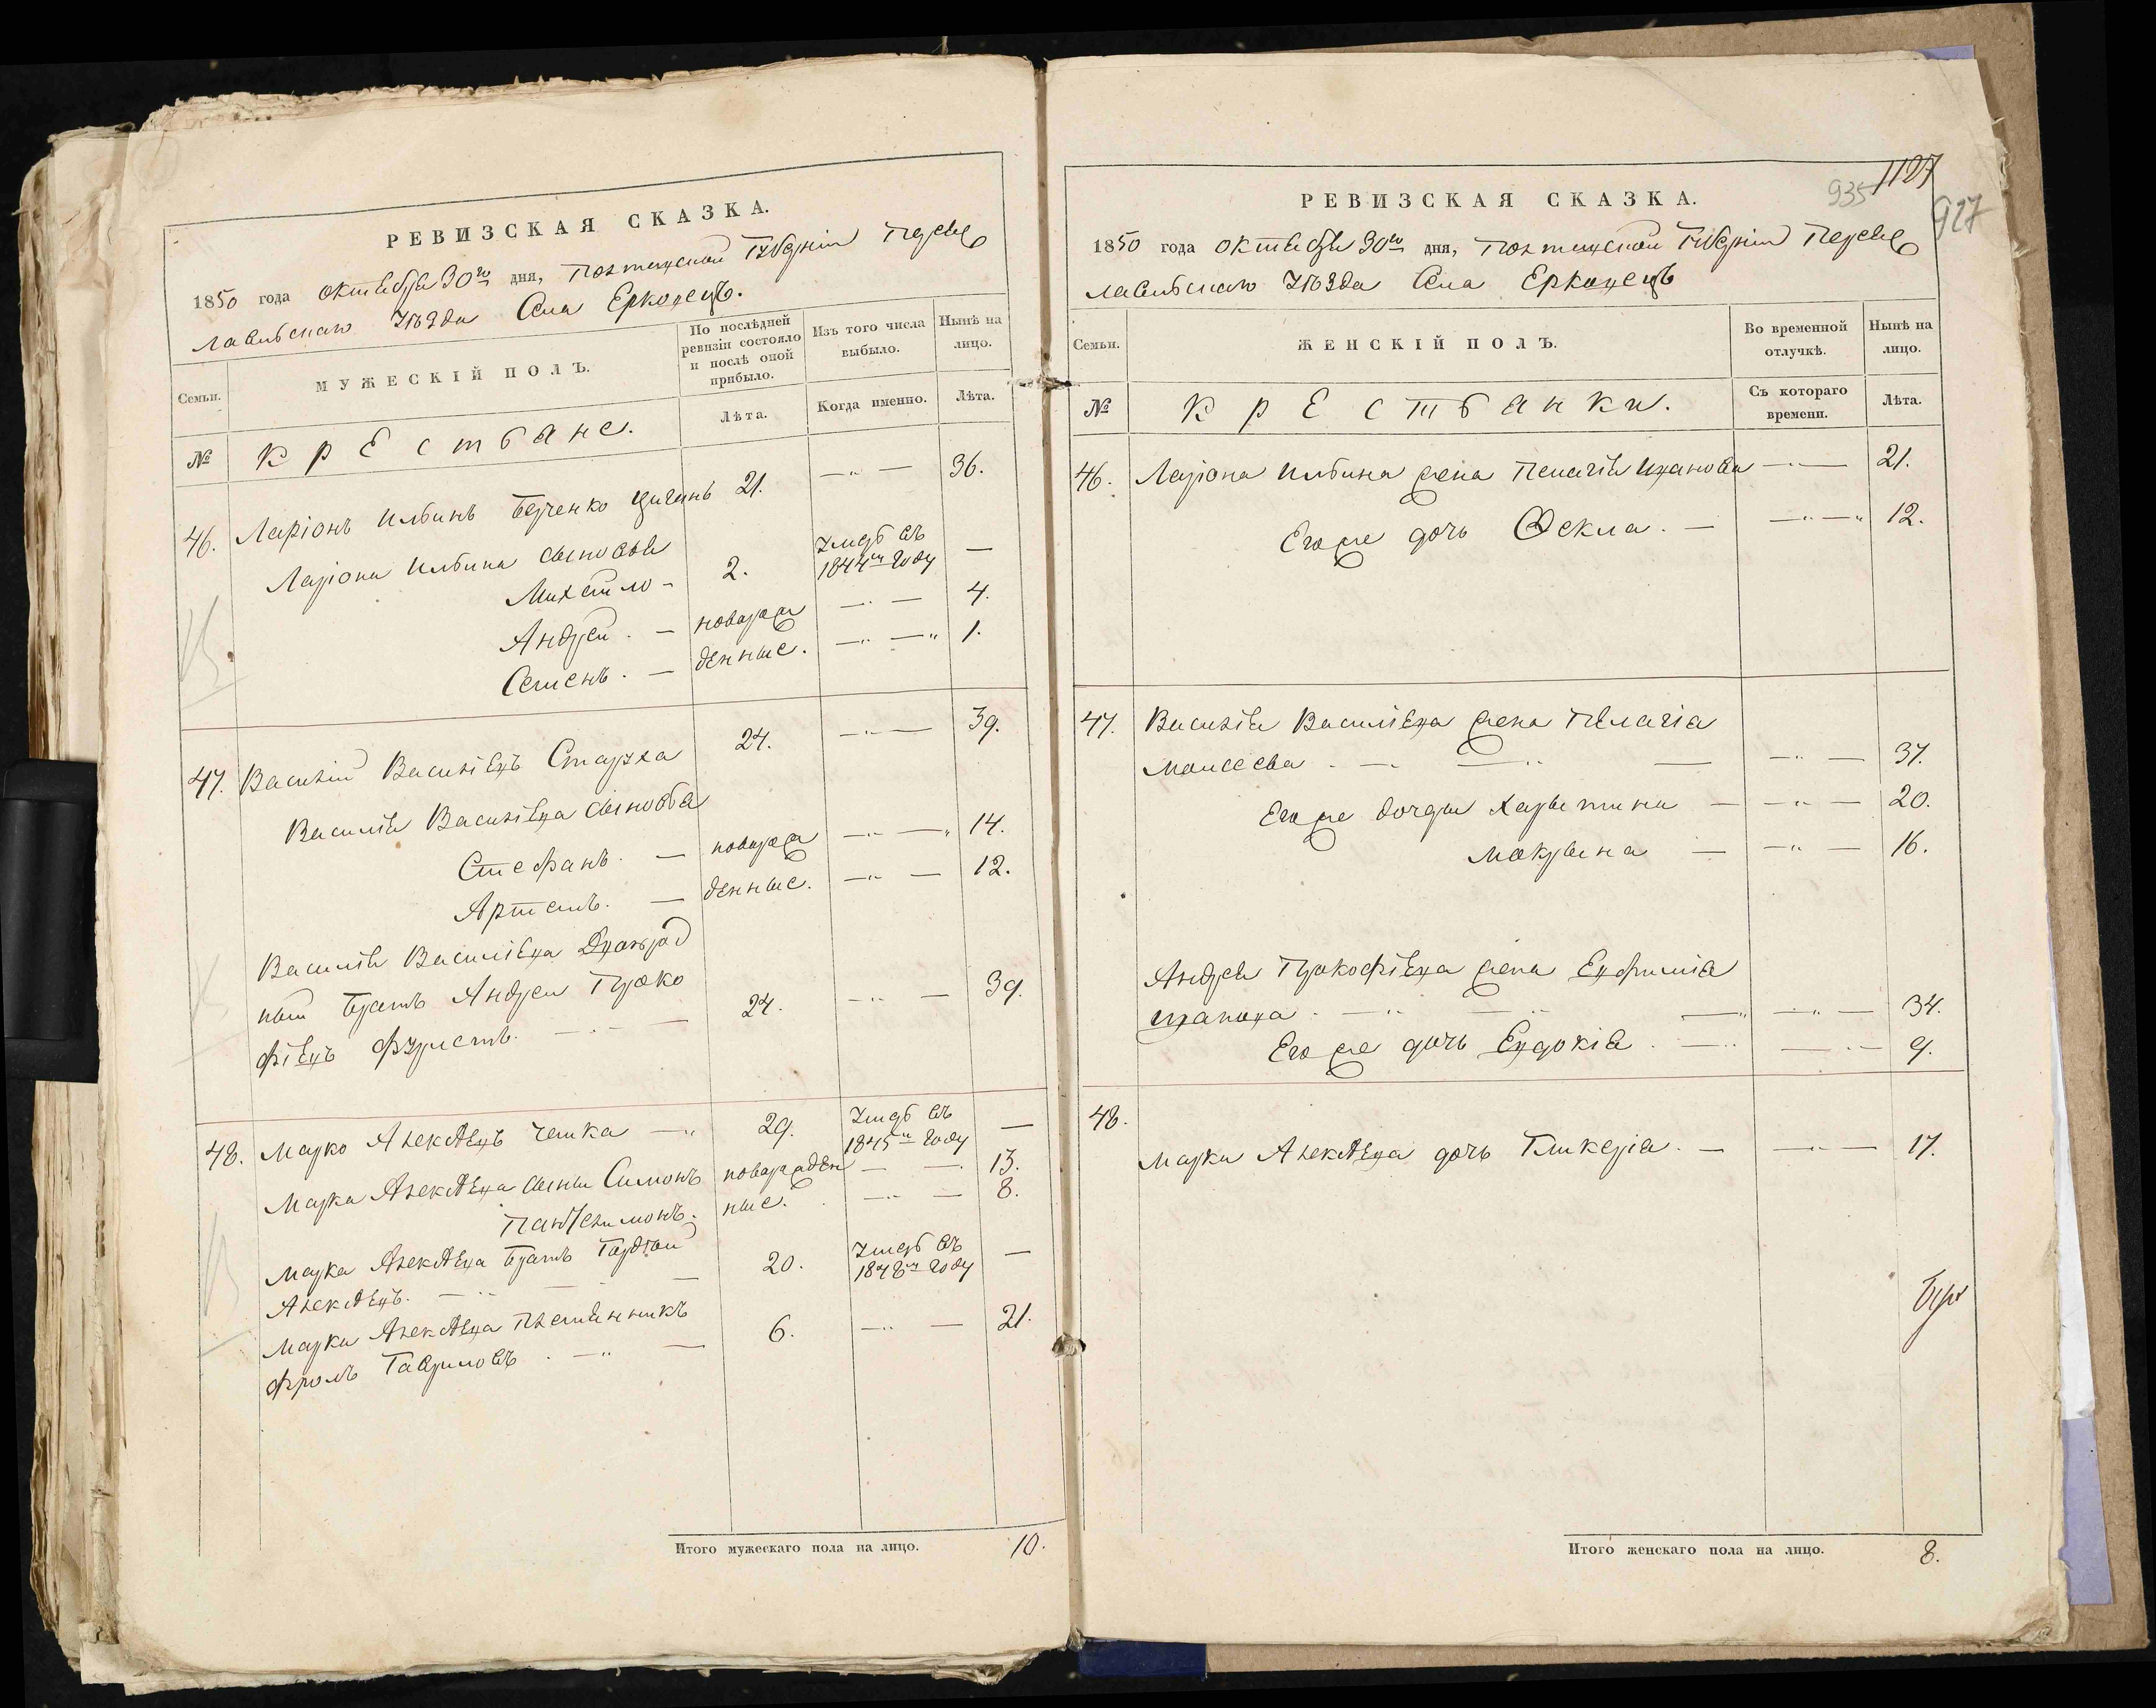 РЕВИЗСКАЯ СКАЗКА.
1850 года октября 30го дня, Полтавской Губерніи Переяс
лавскаго Уѣзда Села Ерковецъ.
Семьи.
МУЖЕСКІЙ ПОЛЪ.
По послѣдней ревизіи состояло и послѣ оной прибыло.
Изъ того числа выбыло.
Нынѣ на лицо.
№
Крестьяне.
Лѣта.
Когда именно.
Лѣта.
46. Ларіонъ Ильинъ 21. — „ — 36.
Ларіона Ильина сыновья
Михайло - 2. Умеръ въ 1844м году —
Андрей . — новорож — „ — 4.
Семенъ . — денные. — „ — „ 1.
47. Василій Васильевъ 24. — „ — 39.
Василія Васильева сыновья
Стефанъ . — новорож — „ — „ 14.
Артемъ . — денные. — „ — 12.
Василія Васильева Двоюрод
ный братъ Андрей Проко
фіевъ — „ — 24. — „ — 39.
48. Марко Алексѣевъ — „ 29. Умеръ въ 1845м году —
Марка Алексѣева сыны Симонъ новорожден — — 13.
Пантелимонъ. ные. — „ — 8.
Марка Алексѣева братъ Гордѣй
Алексѣевъ. — „ — — 20. Умеръ въ 1848м году —
Марка Алексѣева племянникъ
Фролъ Гавриловъ . — „ — 6. — „ — 21.
Итого мужескаго пола на лицо. 10.
935 1127
927
РЕВИЗСКАЯ СКАЗКА.
1850 года октября 30го дня, Полтавской Губерніи Переяс
лавскаго Уѣзда Села Ерковецъ
Семьи.
ЖЕНСКІЙ ПОЛЪ.
Во временной отлучкѣ.
Нынѣ на лицо.
№
Крестьянки.
Съ котораго времени.
Лѣта.
46. Ларіона Ильина жена Пелагія Иванова — „ — 21.
Его же дочь Фекла . — — „ — „ 12.
47. Василія Васильева жена Пелагія
Моисеева . — — „ — — „ — 37.
Его же дочери Харытина — — „ — 20.
Макрына — — „ — 16.
Андрея Прокофіева жена Евфимія
Иванова . — „ — „ — „ — „ — 34.
Его же дочь Евдокія . — „ — „ — 9.
48.
Марка Алексѣева дочь Гликерія . — — „ — 17.
Итого женскаго пола на лицо. 8.